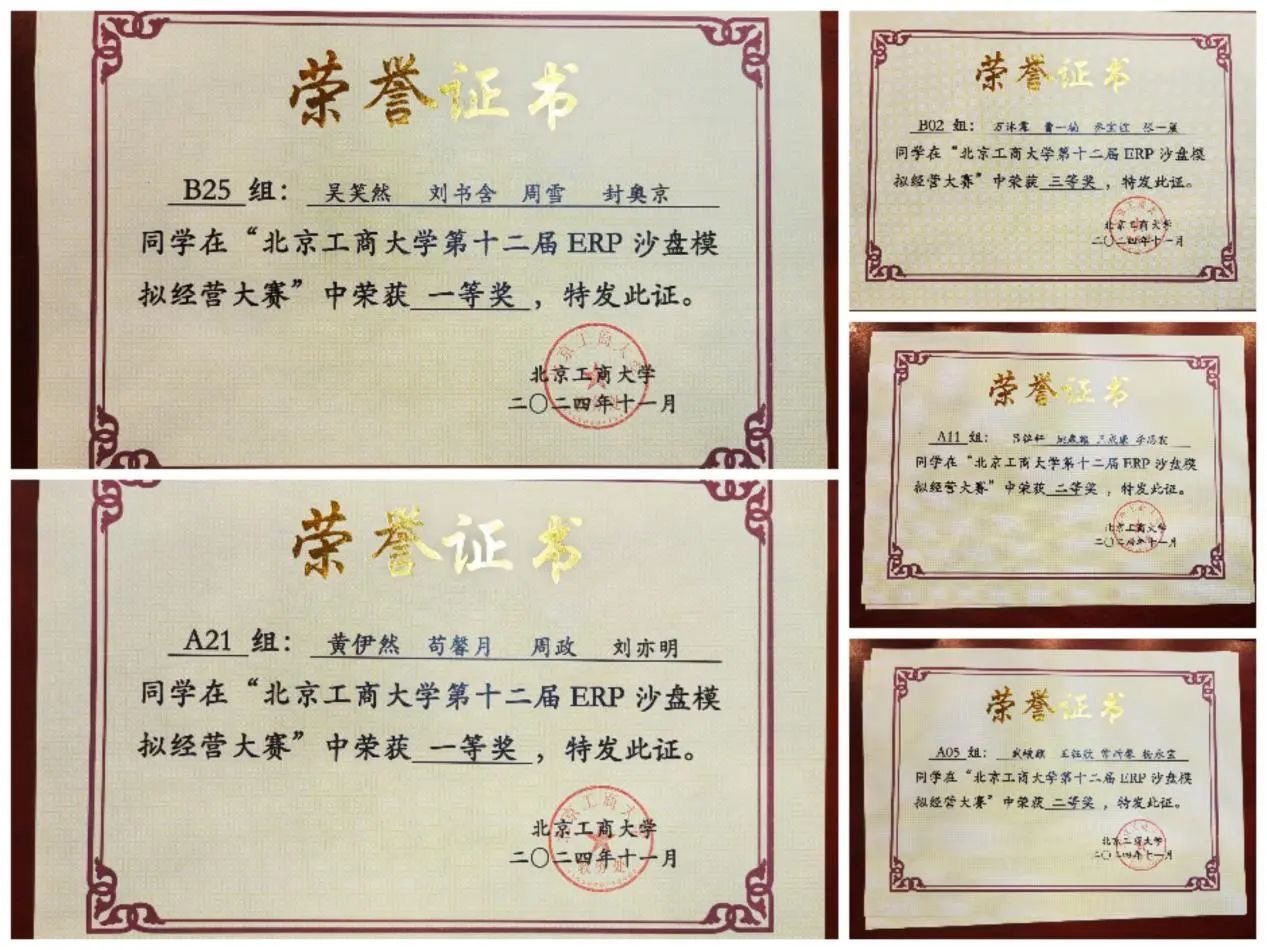 荣誉证书
B25 组： 吴笑然 刘书含 周雪 封奥京
同学在“北京工商大学第十二届 ERP 沙盘模
拟经营大赛”中荣获 一等奖 ，特发此证。
北京工商大学
二〇二四年十一月
荣誉证书
A21 组： 黄伊然 苟馨月 周政 刘亦明
同学在“北京工商大学第十二届 ERP 沙盘模
拟经营大赛”中荣获 一等奖 ，特发此证。
北京工商大学
二〇二四年十一月
教务处
荣誉证书
B02 组：
同学在“北京工商大学第十二届 ERP 沙盘模
拟经营大赛”中荣获 三等奖 ，特发此证。
北京工商大学
二〇二四年十一月
荣誉证书
A11 组：
同学在“北京工商大学第十二届 ERP 沙盘模
拟经营大赛”中荣获 二等奖 ，特发此证。
北京工商大学
二〇二四年十一月
荣誉证书
A05 组：
同学在“北京工商大学第十二届 ERP 沙盘模
拟经营大赛”中荣获 二等奖 ，特发此证。
北京工商大学
二〇二四年十一月